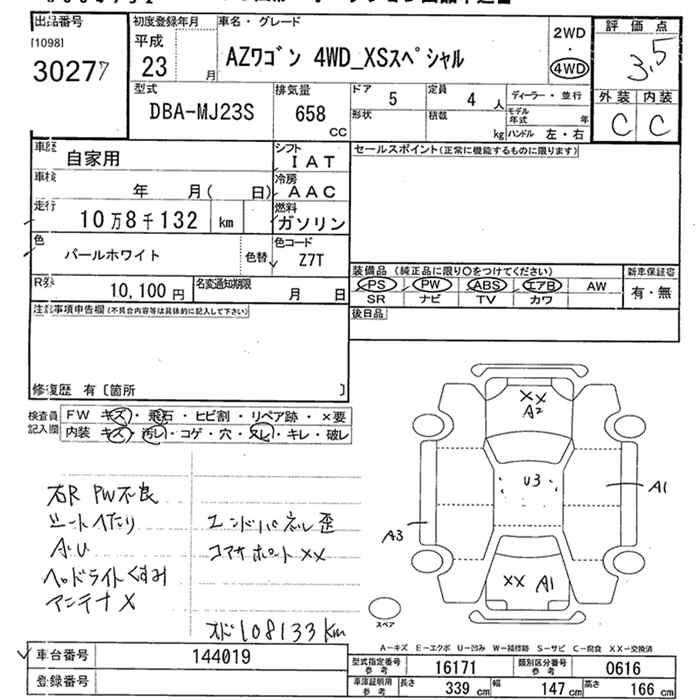 出品番号
[1098]
30277
初度登録年月
平成
23 月
車名・グレード
AZワゴン 4WD_XSスペシャル
2WD
・
4WD
評価点
3.5
外装 内装
C C
型式
DBA-MJ23S
排気量
658
CC
ドア 5
定員 4 人
ディーラー・並行
形状
積載 kg
モデル年式 年
ハンドル 左・右
車歴 自家用
シフト IAT
セールスポイント(正常に機能するものに限ります)
車検 年 月( 日)
冷房 AAC
走行 10万8千132 km
燃料 ガソリン
色 パールホワイト
色替
色コード Z7T
装備品 (純正品に限り○をつけてください)
新車保証書
PS PW ABS エアB AW
有・無
SR ナビ TV カワ
R券 10,100 円
名変通知期限 月 日
後日品
注意事項申告欄(不具合内容等は具体的に記入して下さい)
修復歴 有〔箇所 〕
検査員記入欄
FW キズ・飛石・ヒビ割・リペア跡・×要
内装 キズ・汚レ・コゲ・穴・スレ・キレ・破レ
右R PW不良
シートへたり
A.U
ヘッドライトくすみ
アンテナX
エンドパネル歪
コアサポートXX
オド108133km
XX
A2
U3
A1
A3
XX A1
スペア
A-キズ E-エクボ U-凹み W-補修跡 S-サビ C-腐食 XX-交換済
車台番号 144019
登録番号
型式指定番号参考 16171
類別区分番号参考 0616
車庫証明用参考
長さ 339 cm
幅 147 cm
高さ 166 cm